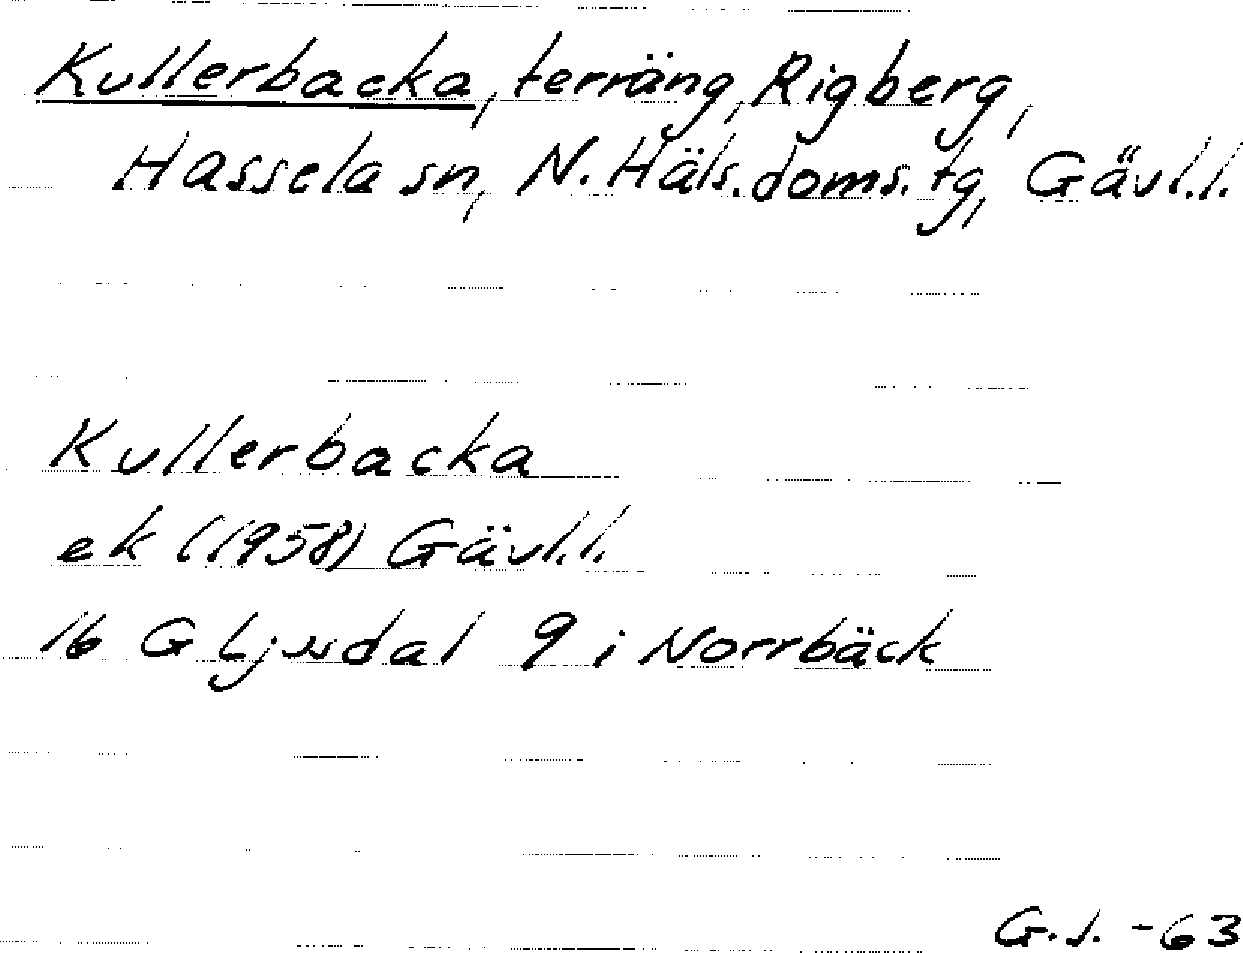 Kullerbacka, terräng, Rigberg,
Hassela sn, N. Häls. doms. tg, Gävl.l.
Kullerbacka
ek (1958) Gävl.l.
16 G Ljusdal 9 i Norrbäck
G.J. -63